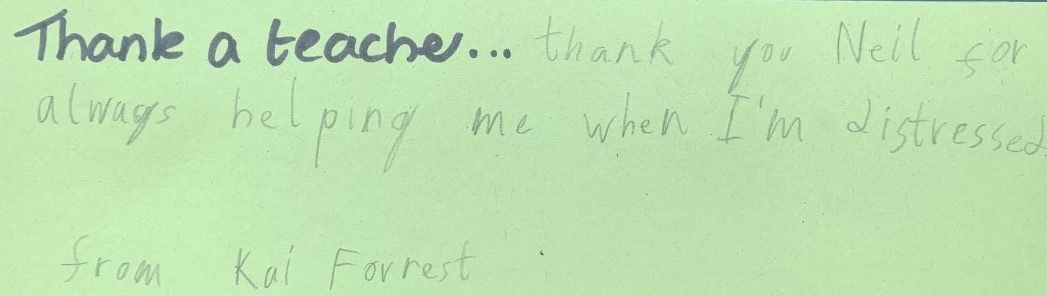 Thank a teacher... thank you Neil for
always helping me when I'm distressed
from Kai Forrest